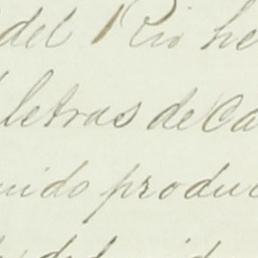 del Rio he
letras de Ca
uido produc